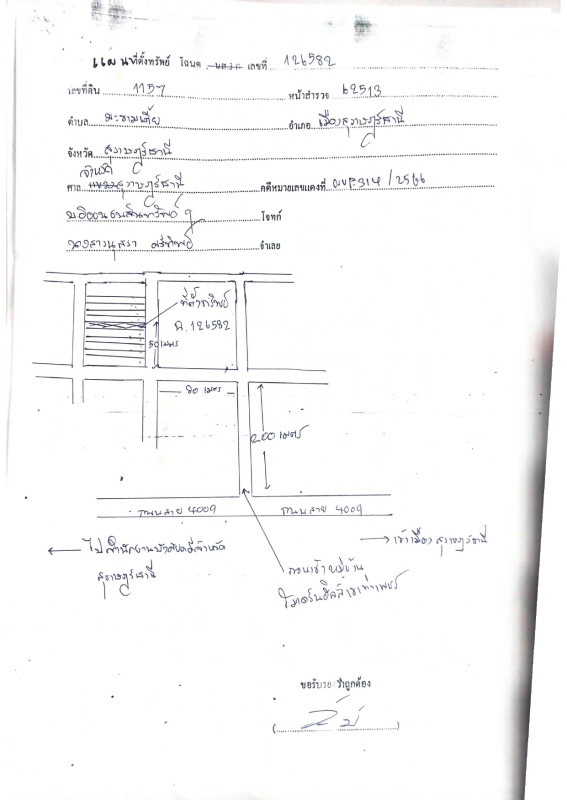 แผนที่ตั้งทรัพย์ โฉนด น.ส.3 ก. เลขที่ 126582
เลขที่ดิน 1157 หน้าสำรวจ 62513
ตำบล มะขามเตี้ย อำเภอ เมืองสุราษฎร์ธานี
จังหวัด สุราษฎร์ธานี
จังหวัด
ศาล แขวงสุราษฎร์ธานี คดีหมายเลขแดงที่ 314/2566
โจทก์
นางสาวนุสรา จำเลย
ที่ตั้งทรัพย์
ฉ. 126582
50 เมตร
80 เมตร
200 เมตร
ถนนสาย 4009 ถนนสาย 4009
ไปสำนักงานบังคับคดีจังหวัด
สุราษฎร์ธานี
เข้าเมืองสุราษฎร์ธานี
ถนนเข้าหมู่บ้าน
โมเดิร์นฮิลล์เขาท่าเพชร
ขอรับรองว่าถูกต้อง